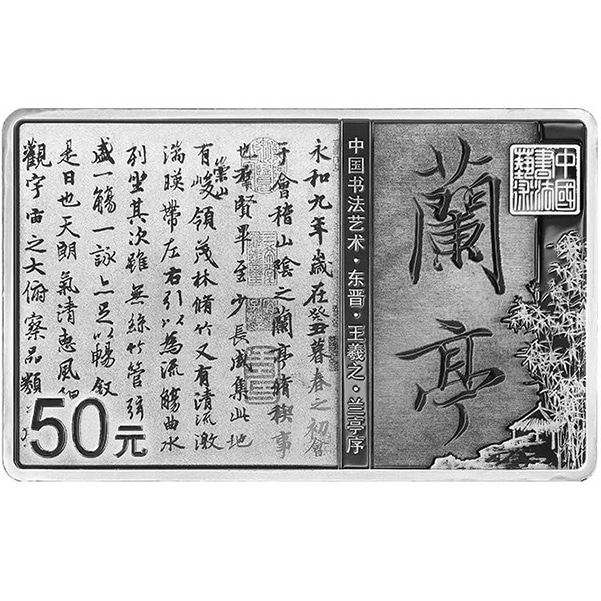 中國
書法
藝術
蘭亭
中国书法艺术·东晋·王羲之·兰亭序
永和九年歲在癸丑暮春之初會
于會稽山陰之蘭亭脩稧事
也群賢畢至少長咸集此地
有崇山峻領茂林脩竹又有清流激
湍暎帶左右引以為流觴曲水
列坐其次雖無絲竹管弦
盛一觴一詠亦足以暢叙
是日也天朗氣清惠風
觀宇宙之大俯察品類
50元